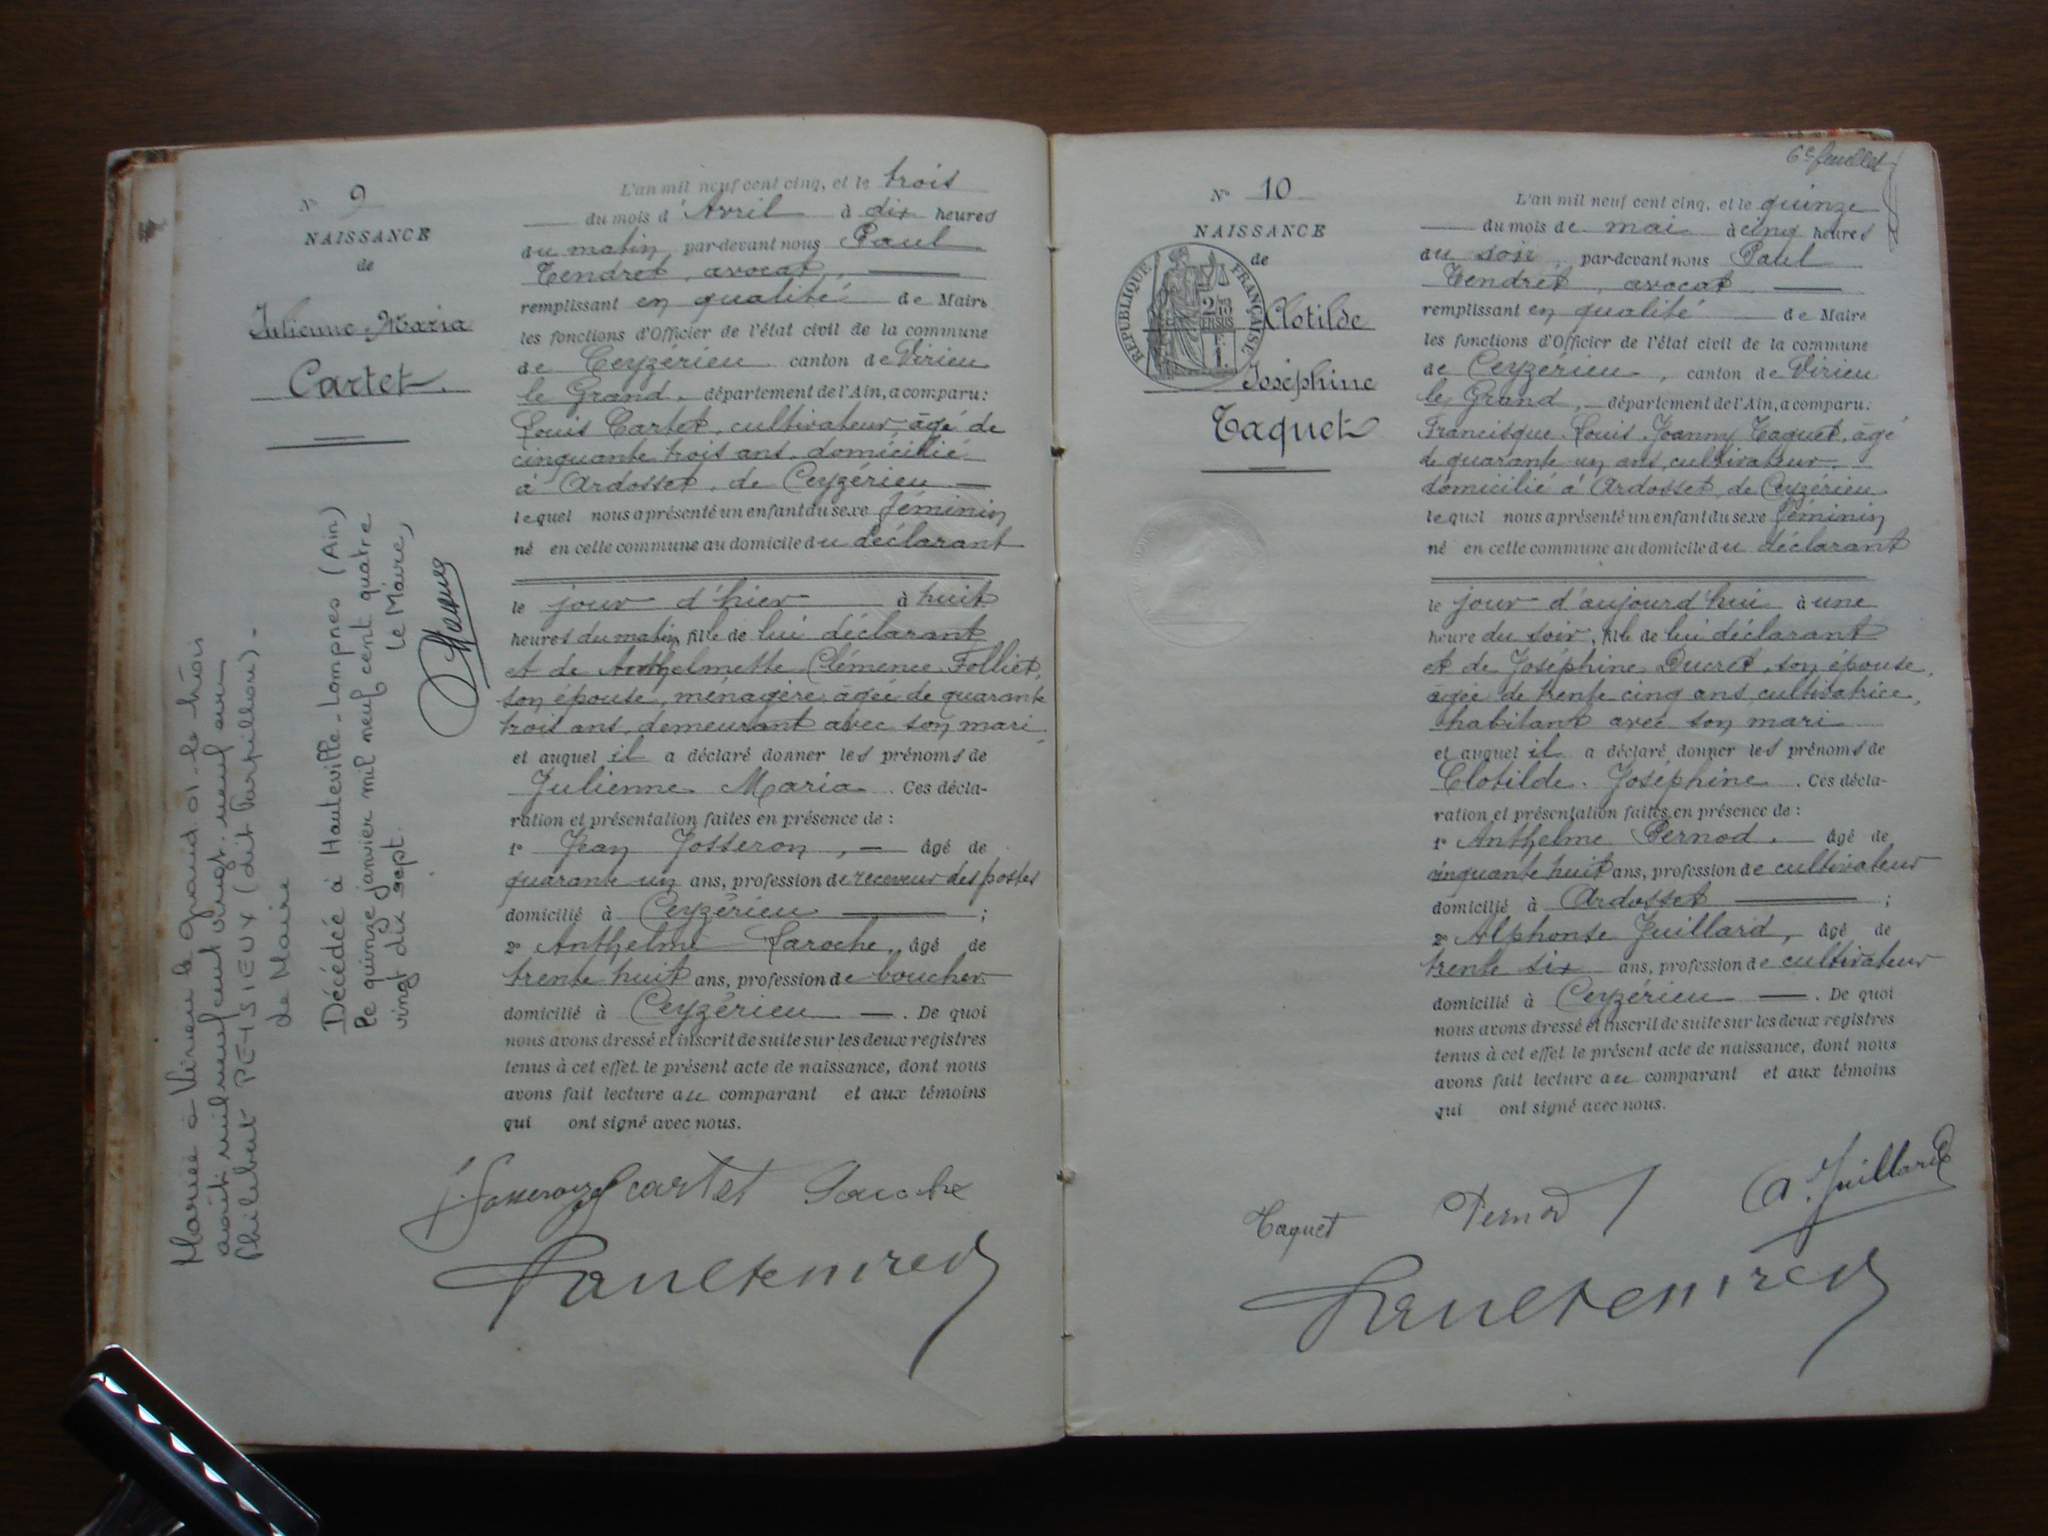 N° 9
NAISSANCE
de
Julienne Maria
Cartet
Mariée à Virieu le Grand 01 le trois
août mil neuf cent vingt neuf avec
Philibert PEYSIEUX (dit Parpillon) -
de Maire
Décédée à Hauteville-Lompnes (Ain)
le quinze janvier mil neuf cent quatre
vingt dix sept.
Le Maire,
L'an mil neuf cent cinq, et le trois
du mois d'Avril à dix heures
du matin, par-devant nous Paul
Tendret, avocat,
remplissant en qualité de Maire
les fonctions d'Officier de l'état civil de la commune
de Ceyzérieu canton de Virieu
le Grand, département de l'Ain, a comparu:
Louis Cartet, cultivateur, âgé de
cinquante trois ans, domicilié
à Ardosset, de Ceyzérieu
lequel nous a présenté un enfant du sexe féminin
né en cette commune au domicile du déclarant
le jour d'hier à huit
heures du matin, fille de lui déclarant
et de Anthelmette Clémence Folliet,
son épouse, ménagère, âgée de quarante
trois ans, demeurant avec son mari,
et auquel il a déclaré donner les prénoms de
Julienne Maria. Ces décla-
ration et présentation faites en présence de :
1° Jean Josseron, âgé de
quarante un ans, profession de receveur des postes
domicilié à Ceyzérieu ;
2° Anthelme Laroche, âgé de
trente huit ans, profession de boucher
domicilié à Ceyzérieu. De quoi
nous avons dressé et inscrit de suite sur les deux registres
tenus à cet effet, le présent acte de naissance, dont nous
avons fait lecture au comparant et aux témoins
qui ont signé avec nous.
J. Josseron Cartet Laroche
Paul Tendret
6e feuillet
N° 10
NAISSANCE
de
RÉPUBLIQUE FRANÇAISE
Clotilde
Joséphine
Taquet
L'an mil neuf cent cinq, et le quinze
du mois de mai à cinq heures
du soir, par-devant nous Paul
Tendret, avocat
remplissant en qualité de Maire
les fonctions d'Officier de l'état civil de la commune
de Ceyzérieu, canton de Virieu
le Grand, département de l'Ain, a comparu:
Francisque Louis Joanny Taquet, âgé
de quarante un ans, cultivateur,
domicilié à Ardosset, de Ceyzérieu
lequel nous a présenté un enfant du sexe féminin
né en cette commune au domicile du déclarant
le jour d'aujourd'hui à une
heure du soir, fille de lui déclarant
et de Joséphine Ducret, son épouse,
âgée de trente cinq ans, cultivatrice,
habitant avec son mari
et auquel il a déclaré donner les prénoms de
Clotilde. Joséphine. Ces décla-
ration et présentation faites en présence de :
1° Anthelme Pernod, âgé de
cinquante huit ans, profession de cultivateur
domicilié à Ardosset ;
2° Alphonse Juillard, âgé de
trente six ans, profession de cultivateur
domicilié à Ceyzérieu. De quoi
nous avons dressé et inscrit de suite sur les deux registres
tenus à cet effet le présent acte de naissance, dont nous
avons fait lecture au comparant et aux témoins
qui ont signé avec nous.
Taquet Pernod A. Juillard
Paul Tendret